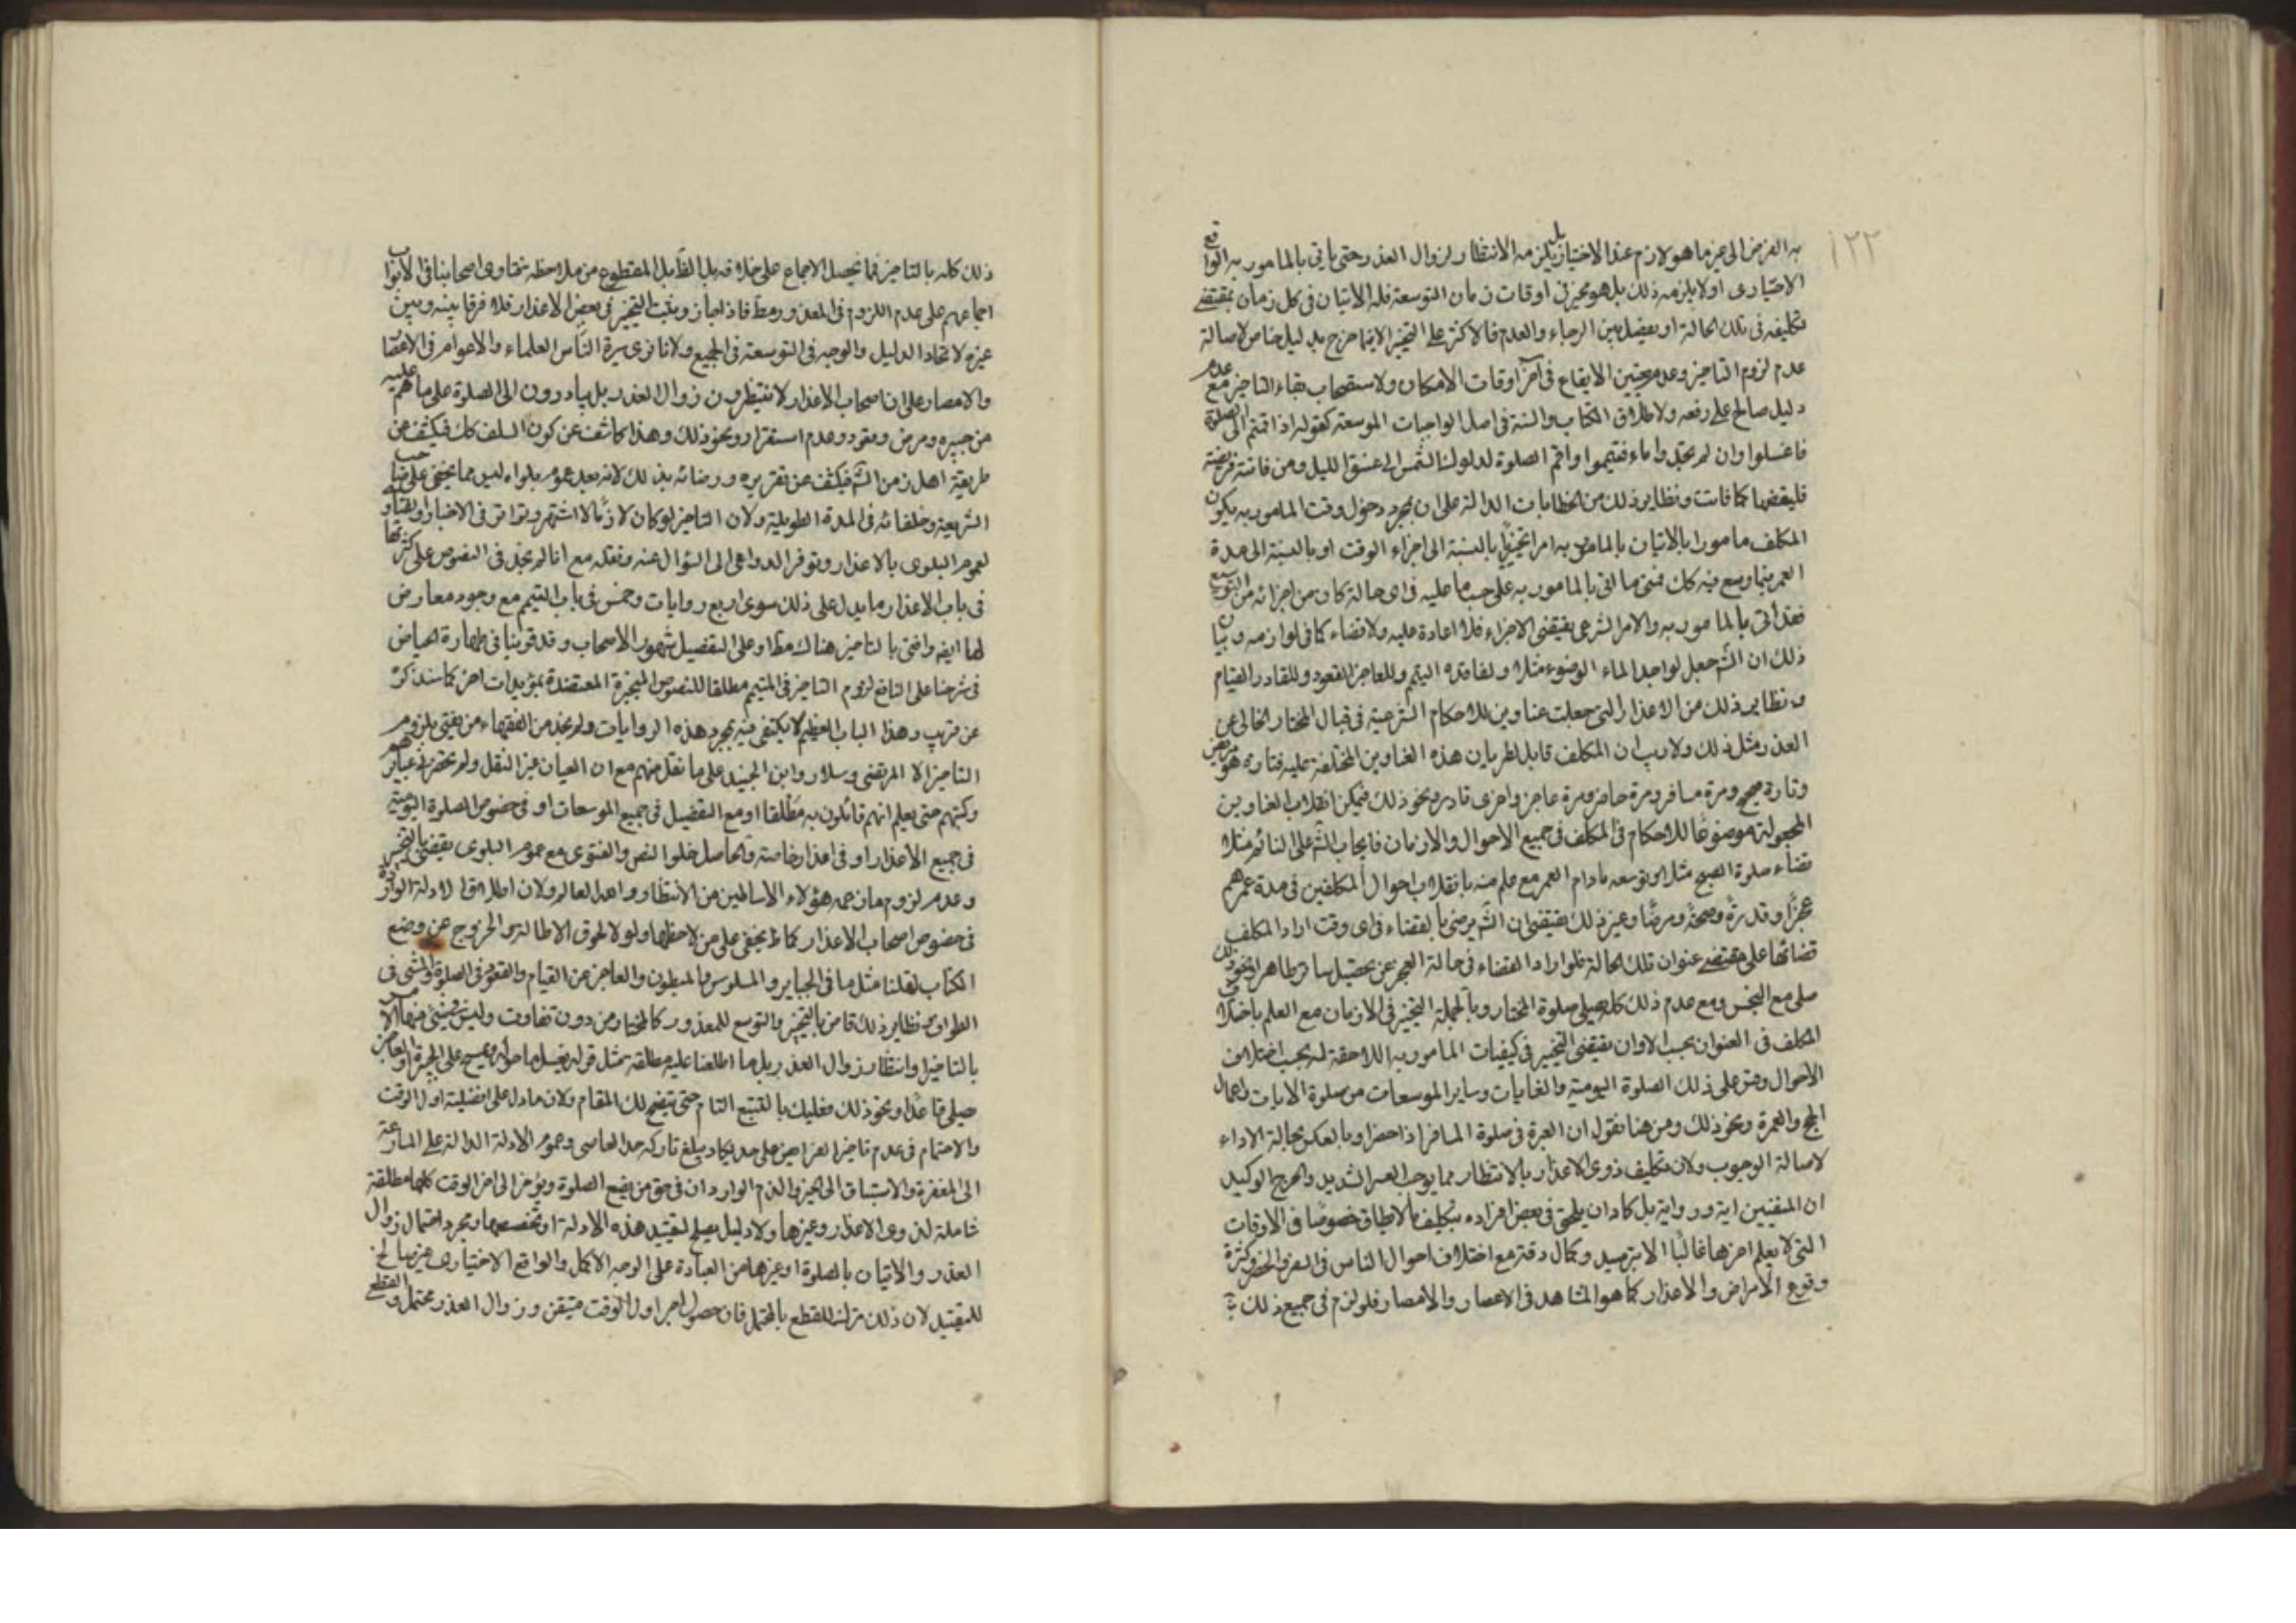 ١٢٢
به الفرض الى غير ما هو لازم عند الاختيار بل يلزمه الانتظار لزوال العذر حتى ياتى بالمامور به الواقع
الاختيارى او لا يلزمه ذلك بل هو مخير فى اوقات زمان التوسعة فله الاتيان فى كل زمان بمقتضى
تكليفه فى تلك الحالة او يفصل بين الرجاء والعدم فالاكثر على التخيير الا فيما خرج بدليل خاص لاصالة
عدم لزوم التاخير وعدم تعيين الايقاع فى آخر اوقات الامكان ولاستصحاب بقاء التاخير مع عدم
دليل صالح على رفعه ولاطلاق الكتاب والسنة فى اصل الواجبات الموسعة كقوله اذا قمتم الى الصلوة
فاغسلوا وان لم تجدوا ماء فتيمموا واقم الصلوة لدلوك الشمس الى غسق الليل ومن فاتته فريضة
فليقضها كما فاتت ونظاير ذلك من الخطابات الدالة على ان بمجرد دخول وقت المامور به يكون
المكلف مامورا بالاتيان بالمامور به امرا تخييريا بالنسبة الى اجزاء الوقت او بالنسبة الى مدة
العمر فيما وسع فيه كك فمتى ما اتى بالمامور به على حسب ما عليه فى اى حالة كان من اجزائه من التوسيع
فقد اتى بالمامور به والامر الشرعى يقتضى الاجزاء فلا اعادة عليه ولا قضاء كما فى لوازمه وبيان
ذلك ان الش جعل لواجد الماء الوضوء مثلا ولفاقده التيمم وللعاجز القعود وللقادر القيام
ونظاير ذلك من الاعذار التى جعلت عناوين للاحكام الشرعية فى قبال المختار الخالى عن
العذر مثل ذلك ولا ريب ان المكلف قابل لطريان هذه العناوين المختلفة عليه فتارة هو مريض
وتارة صحيح ومرة مسافر ومرة حاضر ومرة عاجز واخرى قادر ونحو ذلك فيمكن انقلاب العناوين
المجعولة موضوعا للاحكام فى المكلف فى جميع الاحوال والازمان فايجاب الش على النائم مثلا
قضاء صلوة الصبح مثلا وتوسعه مادام العمر مع علم منه بانقلاب احوال المكلفين فى مدة عمرهم
عجزا وقدرة وصحة ومرضا وغير ذلك يقتضى ان الش يرضى بالقضاء فى اى وقت اراد المكلف
قضائها على مقتضى عنوان تلك الحالة فلو اراد القضاء فى حالة العجز عن تحصيل ساتر طاهر ونحو ذلك
صلى مع النجس ومع عدم ذلك كله يصلى صلوة المختار وبالجملة التخيير فى الازمان مع العلم باختلاف
المكلف فى العنوان بحسب الاوان يقتضى التخيير فى كيفيات المامور به اللاحقة له بحسب اختلاف
الاحوال وقس على ذلك الصلوة اليومية والغايات وساير الموسعات من صلوة الايات واعمال
الحج والعمرة ونحو ذلك ومن هنا نقول ان العبرة فى صلوة المسافر اذا حضر او بالعكس بحالة الاداء
لاصالة الوجوب ولان تكليف ذوى الاعذار بالانتظار مما يوجب العسر الشديد والحرج الوكيد
المنفيين اية ورواية بل كاد ان يلحق فى بعض افراده بتكليف ما لا يطاق خصوصا فى الاوقات
التى لا يعلم اخرها غالبا الا بترصيد وكمال دقة مع اختلاف احوال الناس فى السفر والحضر وكثرة
وقوع الامراض والاعذار كما هو المشاهد فى الاعصار والامصار فلو لزم فى جميع ذلك
ذلك كله بالتاخير فما تحصل الاجماع على خلافه بل القابل المقطوع من ملاحظة فتاوى اصحابنا فى الابواب
اجماعهم على عدم اللزوم فى المعذور مط فاذا جاز وثبت التخيير فى بعض الاعذار فلا فرق بينه وبين
غيره لاتحاد الدليل والوجه فى التوسعة فى الجميع ولانا نرى سيرة الناس العلماء والاعوام فى الاعصار
والامصار على ان اصحاب الاعذار لا ينتظرون زوال العذر بل يبادرون الى الصلوة على ما هم عليه
من جبيرة ومرض وقعود وعدم استقرار ونحو ذلك وهذا كاشف عن كون السلف كك فيكشف عن
طريقة اهل زمن الش فيكشف عن تقريره ورضائه بذلك لانه بعد عموم بلواه ليس مما يخفى على صاحب
الشريعة وخلفائه فى المدة الطويلة ولان التاخير لو كان لازما لاشتهر وتواتر فى الاخبار والفتاوى
لعموم البلوى بالاعذار وتوفر الدواعى الى السؤال عنه ونقله مع انا لم نجد فى النصوص على كثرتها
فى باب الاعذار ما يدل على ذلك سوى اربع روايات وخمس فى باب التيمم مع وجود معارض
لها ايضا وافتى بالتاخير هناك مط او على التفصيل مشهور الاصحاب وقد قوينا فى طهارة الحياض
فى شرحنا على النافع لزوم التاخير فى المتيمم مطلقا للنصوص المنجبرة المعتضدة بمؤيدات اخر كما سنذكره
عن قريب وهذا الباب العظيم لا يكتفى فيه بمجرد هذه الروايات ولم نجد من الفقهاء من يفتى بلزوم
التاخير الا المرتضى وسلار وابن الجنيد على ما نقل عنهم مع ان العيان غير النقل ولم تحضرنى عبايرهم
وكتبهم حتى يعلم انهم قائلون به مطلقا او مع التفصيل فى جميع الموسعات او فى خصوص الصلوة اليومية
فى جميع الاعذار او فى اعذار خاصة والحاصل خلو النص والفتوى مع عموم البلوى يقتضى بالتخيير
وعدم لزوم ما زعمه هؤلاء الاساطين من الانتظار والله العالم ولان اطلاق الادلة الواردة
فى خصوص اصحاب الاعذار كما لا يخفى على من لاحظها ولولا لحوق الاطالة والخروج عن وضع
الكتاب لنقلنا مثل ما فى الجباير والمسلوس والمبطون والعاجز عن القيام والقعود فى الصلوة والمشى فى
الطواف ونظاير ذلك قاض بالتخيير والتوسع للمعذور كالمختار من دون تفاوت وليس فى شئ منها الامر
بالتاخير وانتظار زوال العذر بل ما اطلعنا عليه مطلقه مثل قوله يغسل ما حوله ويمسح على الجبيرة والعاجز
يصلى قاعدا ونحو ذلك فعليك بالتتبع التام حتى يتضح لك المقام ولان ما دل على افضلية اول الوقت
والاهتمام فى عدم تاخير الفرايض على حد يكاد يبلغ تاركه حد العاصى وعموم الادلة الدالة على المسارعة
الى المغفرة والاستباق الى الخير والذم الواردان فى حق من يضيع الصلوة ويؤخر الى اخر الوقت كلها مطلقة
شاملة لذوى الاعذار وغيرها ولا دليل يصلح لتقييد هذه الادلة او تخصيصها ومجرد احتمال زوال
العذر والاتيان بالصلوة او غيرها من العبادة على الوجه الاكمل والواقع الاختيارى غير صالح
للتقييد لان ذلك ترك للقطع بالمحتمل فان حصول اجر اول الوقت متيقن وزوال العذر محتمل والقطع